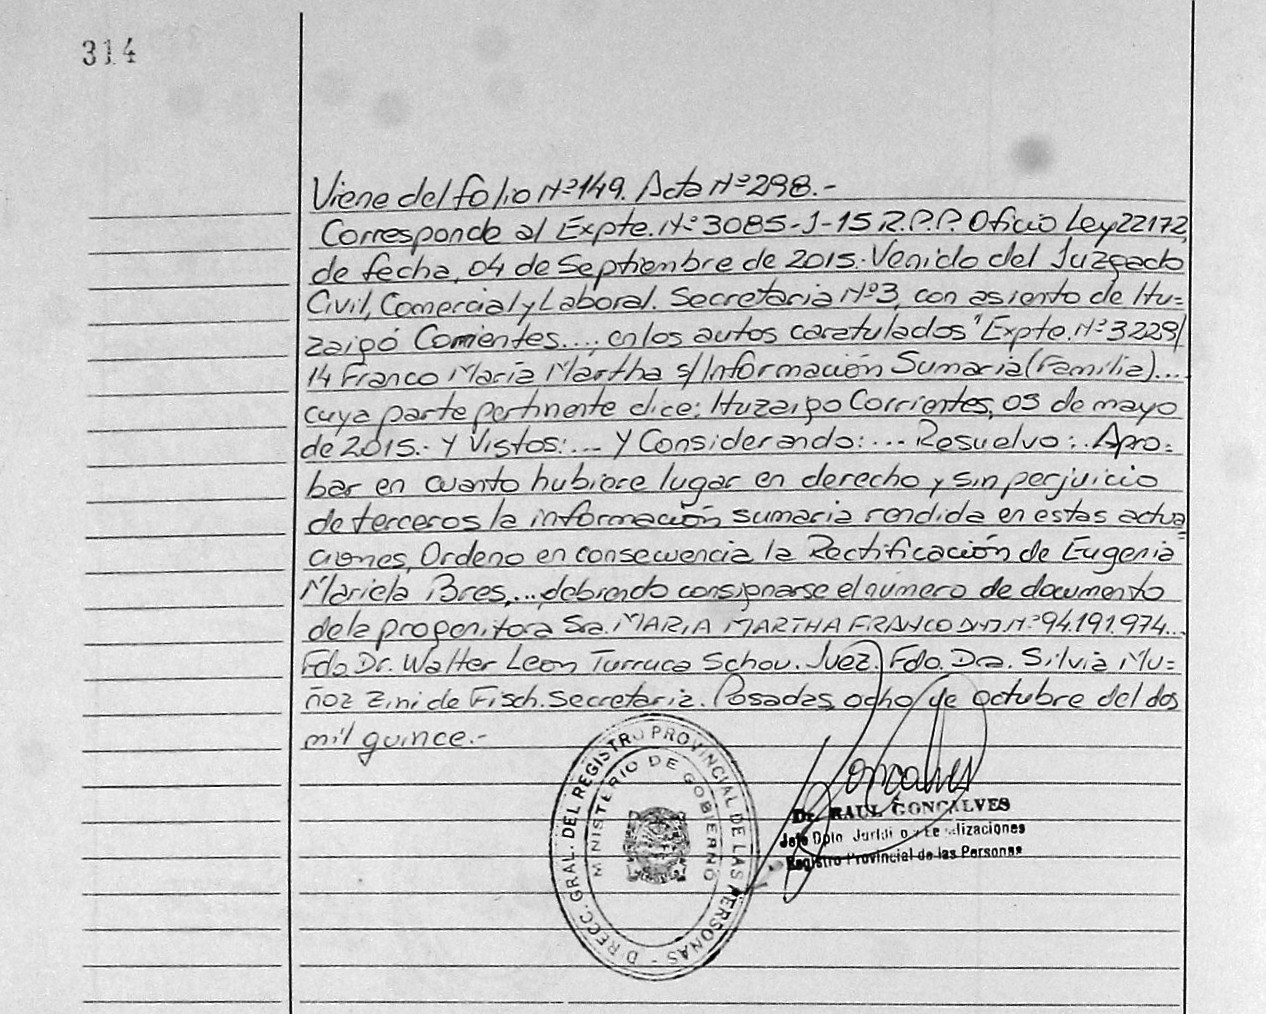 314
Viene del folio Nº149. Acta Nº298.-
Corresponde al Expte. Nº3085-J-15 R.P.P. Oficio Ley 22172,
de fecha, 04 de Septiembre de 2015.- Venido del Juzgado
Civil, Comercial y Laboral. Secretaria Nº3, con asiento de Itu=
zaigó Corrientes...., en los autos caratulados "Expte. Nº3229/
14 Franco María Martha s/Información Sumaria (Familia)....
cuya parte pertinente dice: Ituzaigo Corrientes, 05 de mayo
de 2015.- Y Vistos:.... Y Considerando:.... Resuelvo:. Apro=
bar en cuanto hubiere lugar en derecho y sin perjuicio
de terceros la información sumaria rendida en estas actua
ciones, Ordeno en consecuencia la Rectificación de Eugenia
Mariela Bres,... debiendo consignarse el número de documento
de la progenitora Sra. MARIA MARTHA FRANCO D.N.I. Nº94.191.974...
Fdo Dr. Walter Leon Turraca Schou. Juez. Fdo. Dra. Silvia Mu=
ñoz Zini de Fisch. Secretaria. Posadas, ocho de octubre del dos
mil quince.-
DIRECC. GRAL. DEL REGISTRO PROVINCIAL DE LAS PERSONAS -
MINISTERIO DE GOBIERNO
Goncalves
Dr. RAUL GONCALVES
Jefe Dpto. Jurídico y Legalizaciones
Registro Provincial de las Personas